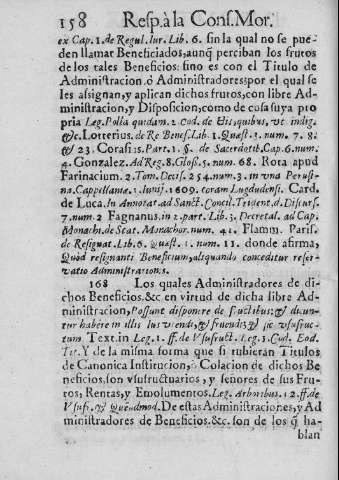 158 Resp. à la Cons. Mor.
ex Cap. 1. de Regul. Iur. Lib. 6. sin la qual no se pue-
den llamar Beneficiados, aunq̃ perciban los frutos
de los tales Beneficios: sino es con el Titulo de
Administracion. ò Administradores: por el qual se
les assignan, y aplican dichos frutos, con libre Ad-
ministracion, y Disposicion, como de cosa suya pro
pria Leg. Polla quidam. 2. Cod. de His, quibus, vt indig.
&c. Lotterius. de Re Benef. Lib. 1. Quæst. 3. num. 7. 8.
& 23. Corasius. Part. 1. §. de Sacerdotib. Cap. 6. num.
4. Gonzalez. Ad Reg. 8. Glos. 5. num. 68. Rota apud
Farinacium. 2. Tom. Decis. 254. num. 3. in vna Perusi-
na. Cappellaniæ. 1. Iunij. 1609. coram Lugdudensi. Card.
de Luca. In Annotat. ad Sanct. Concil. Trident. d. Discurs.
7. num. 2 Fagnanus. in 2. part. Lib. 3. Decretal. ad Cap.
Monachi. de Stat. Monachor. num. 41. Flamm. Paris.
de Resignat. Lib. 6. Quæst. 1. num. 11. donde afirma,
Quòd resignanti Beneficium, aliquando conceditur reser-
vatio Administrationis.
168 Los quales Administradores de di-
chos Beneficios. &c. en virtud de dicha libre Ad-
ministracion, Possunt disponere de fructibus: & dicun-
tur habere in illis Ius vtendi, & fruendi; & sic vsufruc-
tum Text. in Leg. 1. ff. de Vsufruct. Leg. 1. Cod. Eod.
Tit. Y de la misma forma que si tubieran Titulos
de Canonica Institucion, ò Colacion de dichos Be
neficios, son vsufructuarios, y señores de sus Fru-
tos, Rentas, y Emolumentos. Leg. Arboribus. 12. ff. de
Vsufr. & Quẽadmod. De estas Administraciones, y Ad
ministradores de Beneficios. &c. son de los q̃ ha-
blan